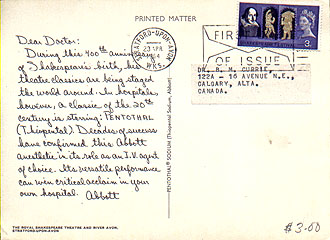 PRINTED MATTER
Dear Doctor:
During this 400th anniversary
of Shakespeare's birth, his
theatre classics are being staged
the world around. In hospitals,
however, a classic of the 20th
century is starring: PENTOTHAL
(Thiopental). Decades of success
have confirmed this Abbott
anesthetic in its role as an I.V. agent
of choice. Its versatile performance
can win critical acclaim in your
own hospital. Abbott
THE ROYAL SHAKESPEARE THEATRE AND RIVER AVON,
STRATFORD-UPON-AVON
PENTOTHAL® SODIUM (Thiopental Sodium, Abbott)
STRATFORD-UPON-AVON
23 APR
WKS.
FIRST
OF ISSUE
3d
DR. B. M. CURRIE
122A - 16 AVENUE N.E.,
CALGARY, ALTA.
CANADA.
$3.00